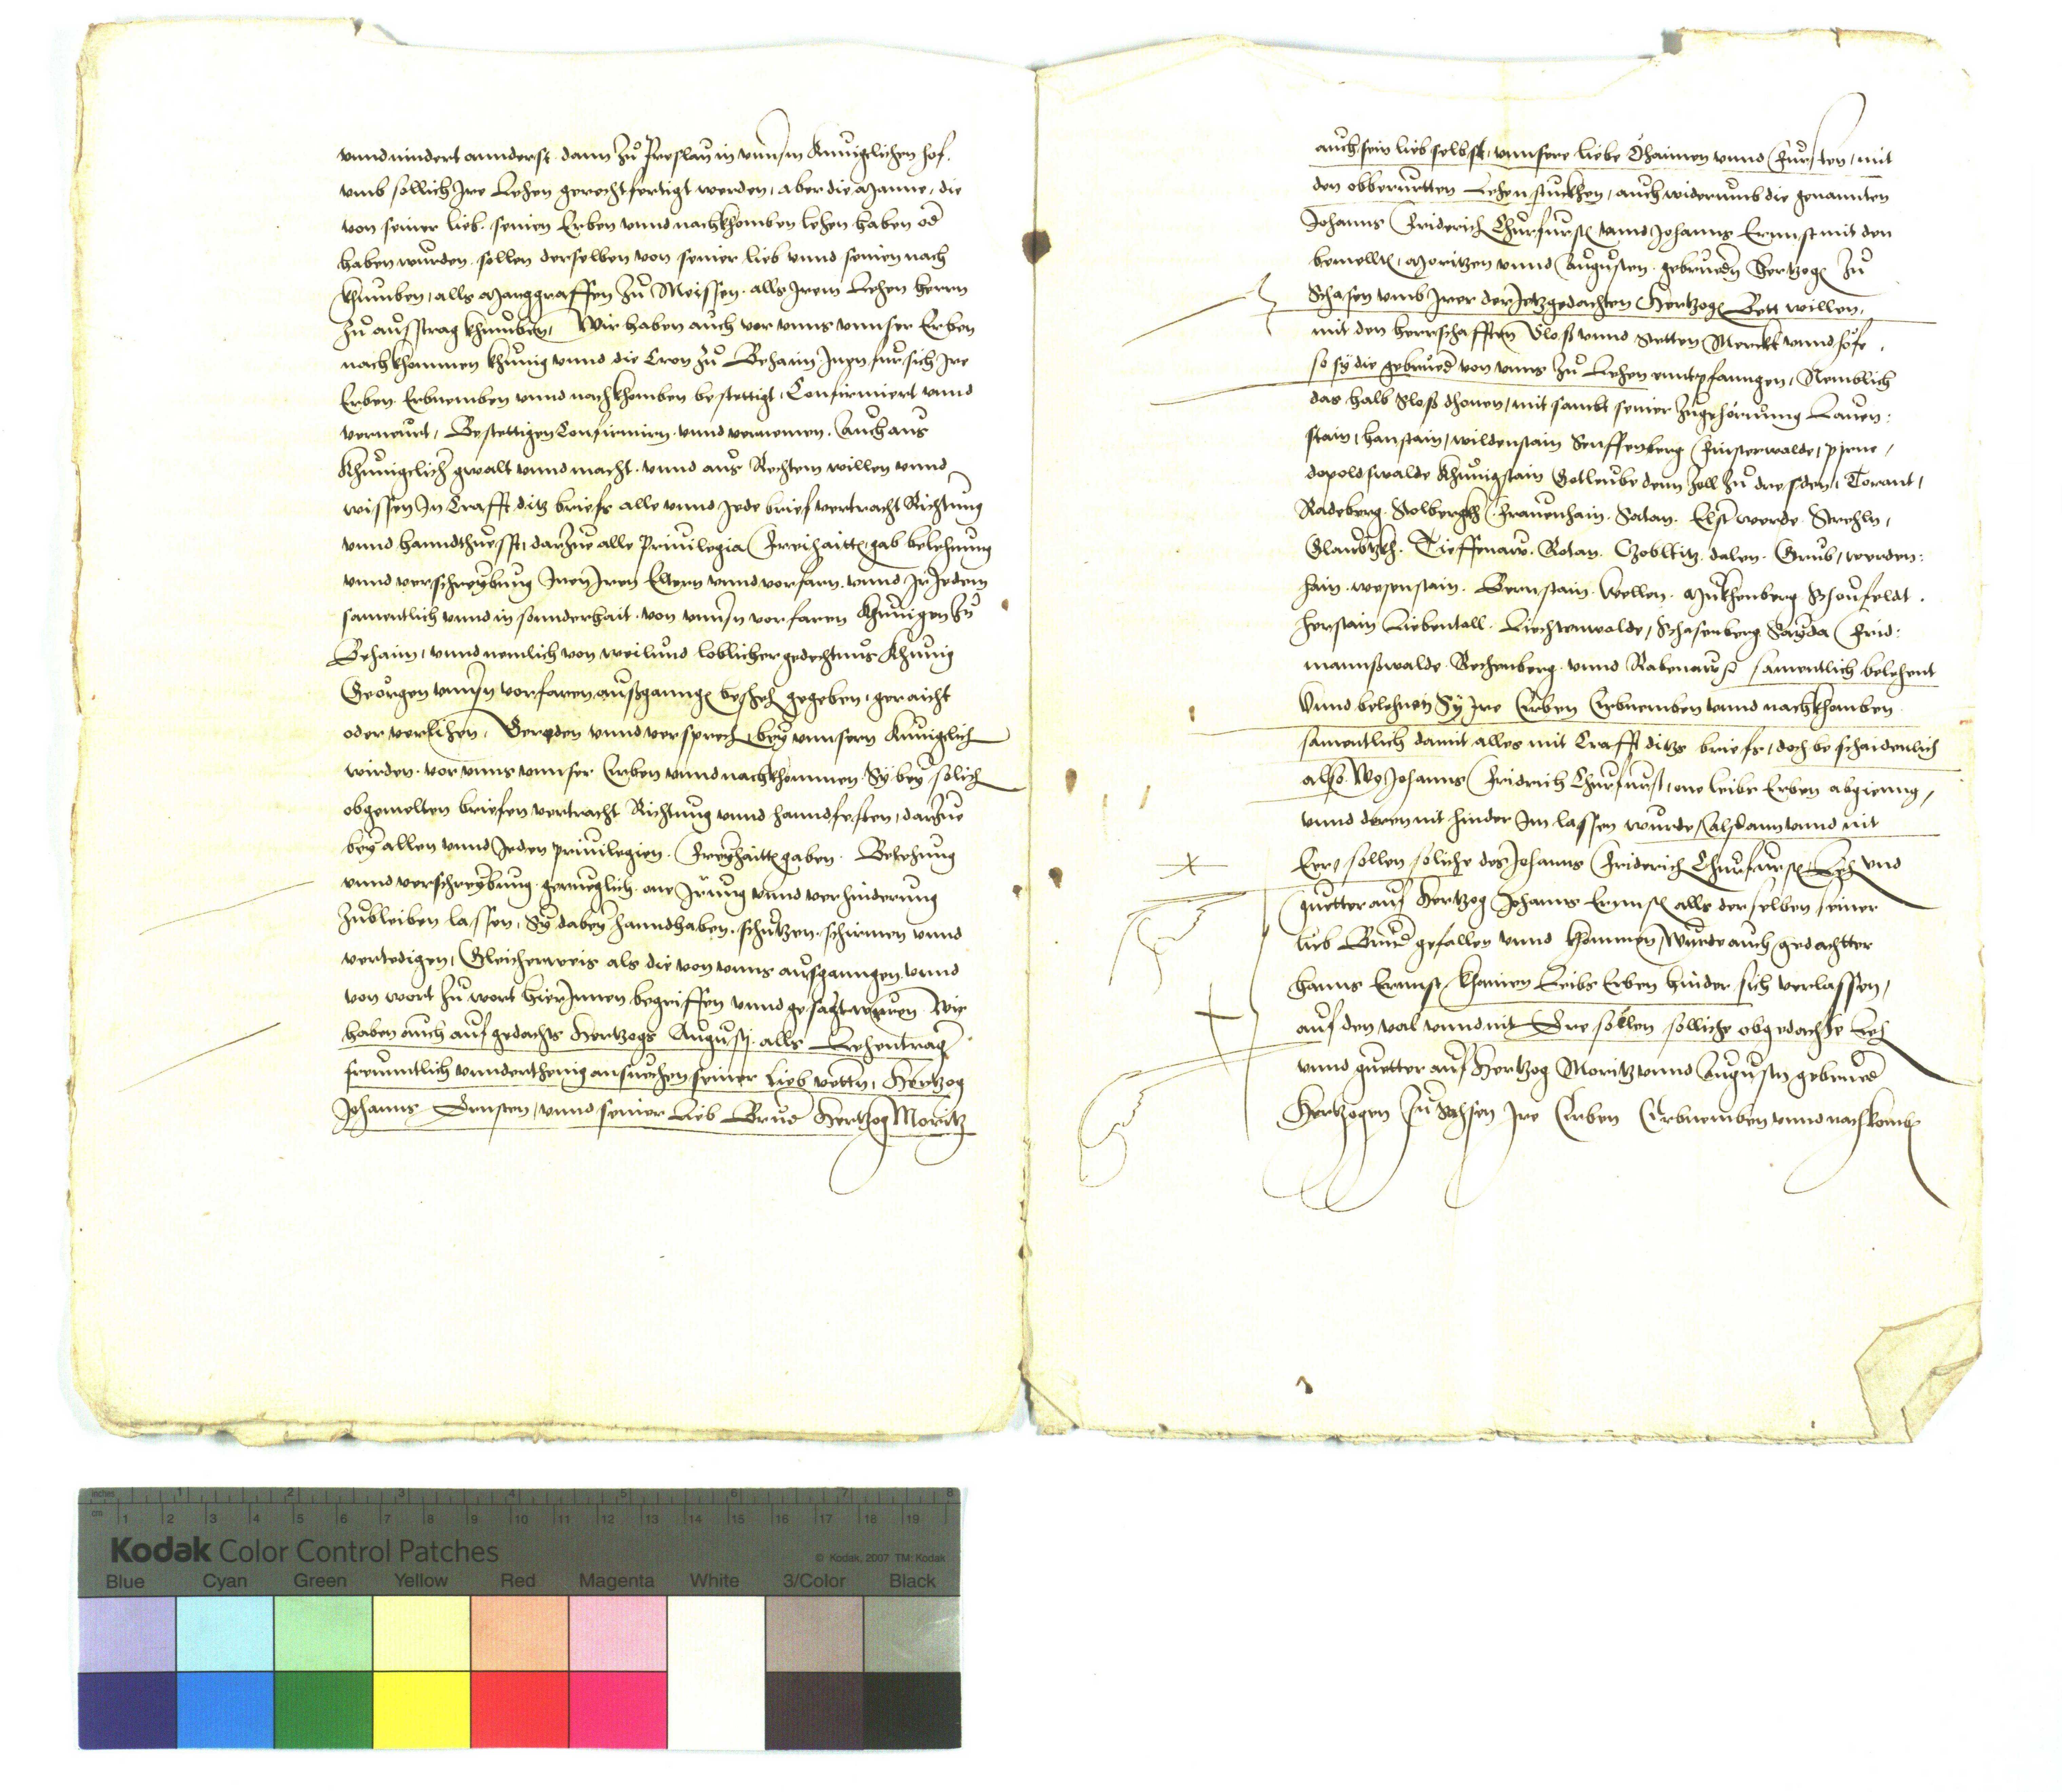 vnnd nindert annderst dann zu Preslau in vnnsrn Kunigclichen hof.
vmb sollich Ire Lehen gerechtfertigt werden, aber die Manne, die
von seiner lieb. seinen Erben vnnd nachkhomben lehen haben od
haben wurden. sollen derselben von seiner lieb vnnd seinen nach
khumben, alls Marggraffen zu Meissen. alls Irem Lehen herrn
zu austrag khumben, Wir haben auch vor vnns vnnser Erben
nachkhommen khunig vnnd die Cron zu Behaim Inen fur sich Ire
Erben Erbnemben vnnd nachkhomben bestettigt, Confirmiert vnnd
verneurt, Bestettigen Confirmirn vnnd vernewen. Auch aus
khunigclicher gwalt vnnd macht. vnnd aus Rechtem willen vnnd
wissen In Crafft ditz briefs alle vnnd Jede brief vertracht Richtung
vnnd hanndthvesst, darzue alle Priuilegia Freihaitten, gab belehnung
vnnd verschreybung Inen Iren Elltern vnnd vorfarn. vnnd Ir Jedem
samentlich vnnd in sonnderhait. von vnnsrn vorfaren Khunigen zu
Behaim, vnnd nemlich von weilund loblicher gedechtnus Khunig
Georgen vnnsrn vorfaren außganngen beschehen gegeben, geraicht
oder verlihen, Gereden vnnd versprechen, bey vnnsern Kuniglichen
wirden. vor vnns vnnser Erben vnnd nachkhommen Sy bey solich
obgemelten briefen vertracht Richtung vnnd hanndfesten, darzue
bey allen vnnd Jeden priuilegien. Freyhaitten gaben. Belehnung
vnnd verschreybung genueglich one Irrung vnnd verhinderung
zubleiben lassen, Sy dabey hanndhaben, schutzen, schirmen vnnd
vertedigen, Gleicherweis als die von vnns ausganngen vnnd
von wort zu wort hierInnen begriffen vnnd gesatzt weren Wir
haben auch auf gedachts Hertzogs Augusti alls Lehentrager
freuntlich vnnderthenig ansuechen seiner Lieb vettern, Hertzog
Johanns Ernsten, vnnd seiner Lieb Bruder Hertzog Moritz
auch sein lieb selbst, vnnsere liebe Ohaimen vnnd Fursten, mit
den obberurtten Lehen stuckhen, auch widerumb die genannten
Johanns Friderich Churfursten vnnd Johanns Ernnst mit den
bemellten, Moritzen vnnd Augusten gebruedern Hertzogen zu
Sachsen vmb Irer der Jetzgedachten Hertzogen Bett willen,
mit den herrschafften Sloß vnnd Stetten Merckt vnnd höfe,
so sy die gebrueder von vnns zu Lehen emntpfanngen, Nemblich
das halb Sloß dhonen, mit sambt seiner zugehörnung Lauen:
stain, hanstain, wildenstain Senfftenberg Finsterwalde, pirne,
dopoldswalde Khunigstain Gotleube denn zoll zu dresden, Torant,
Radeberg. Stolbergkh Frauenhain. Satan. Elst werde Strehln,
Glaubtzkh. Tieffenaw. Rotan. Czobltitz. dalen. Grub, werden:
hain. wesenstain. Bernstain. Wellen. Mukhenberg Schonfeldt.
herstain Liebentall. Liechtenwalde, Schasenberg Sayda Frid:
mannßwalde. Rechenberg. vnnd Rabenaw, samentlich belehent
Vnnd belehnen Sy Ire Erben Erbnemben vnnd nachkhomben
samentlich damit alles mit Crafft ditzs briefs, doch beschaidenlich
also. Wo Johanns Fridrich Churfurst, one leibs Erben abgienng,
vnnd deren nit hinder Im lassen wurde, Alsdann vnnd nit
Eer, sollen soliche des Johanns Friderich Churfursten Lehen vnd
guetter auf Hertzog Johanns Ernnsten alls derselben seiner
lieb Bruder gefallen vnnd khommen, Wurde auch gedachter
Hanns Ernnst khainen Leibs Erben hinder sich verlassen,
auf den val vnnd nit Eer sollen solliche obgedachte Lehen
vnnd guetter auf Hertzog Moritz vnnd Augusten gebrueder
Hertzogen zu Sachsen Ire Erben Erbnemben vnnd nachkomben
inches 1 2 3 4 5 6 7 8
cm 1 2 3 4 5 6 7 8 9 10 11 12 13 14 15 16 17 18 19
Kodak Color Control Patches
© Kodak, 2007 TM: Kodak
Blue Cyan Green Yellow Red Magenta White 3/Color Black